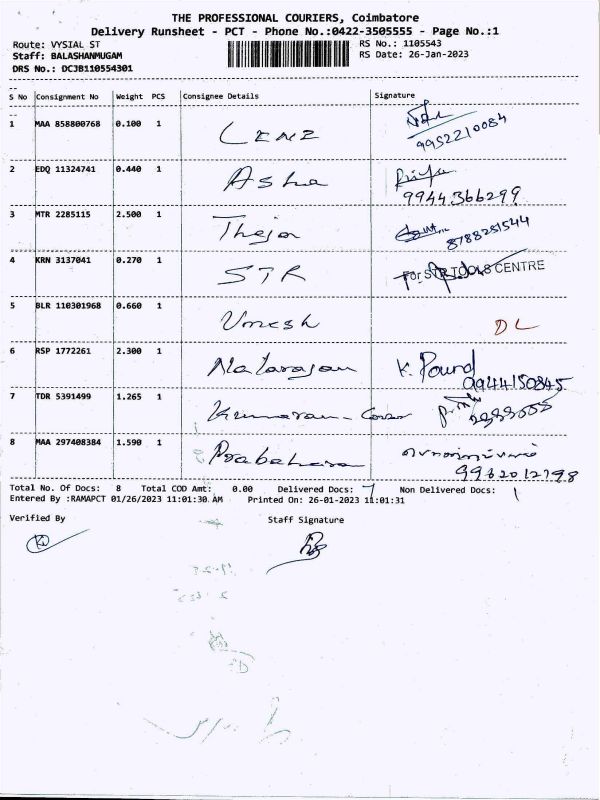 THE PROFESSIONAL COURIERS, Coimbatore
Delivery Runsheet - PCT - Phone No.:0422-3505555 - Page No.:1
Route: VYSIAL ST RS No.: 1105543
Staff: BALASHANMUGAM RS Date: 26-Jan-2023
DRS No.: DCJB110554301
S No Consignment No Weight PCS Consignee Details Signature
1 MAA 858800768 0.100 1 LENZ 9952210084
2 EDQ 11324741 0.440 1 Asha 9944366299
3 MTR 2285115 2.500 1 Theja 8788251544
4 KRN 3137041 0.270 1 STR For STR TOOLS CENTRE
5 BLR 110301968 0.660 1 Umesh DL
6 RSP 1772261 2.300 1 Natarajan K. 9944150845
7 TDR 5391499 1.265 1 Kumaran
8 MAA 297408384 1.590 1 9962012798
Total No. Of Docs: 8 Total COD Amt: 0.00 Delivered Docs: 7 Non Delivered Docs: 1
Entered By :RAMAPCT 01/26/2023 11:01:30 AM Printed On: 26-01-2023 11:01:31
Verified By Staff Signature